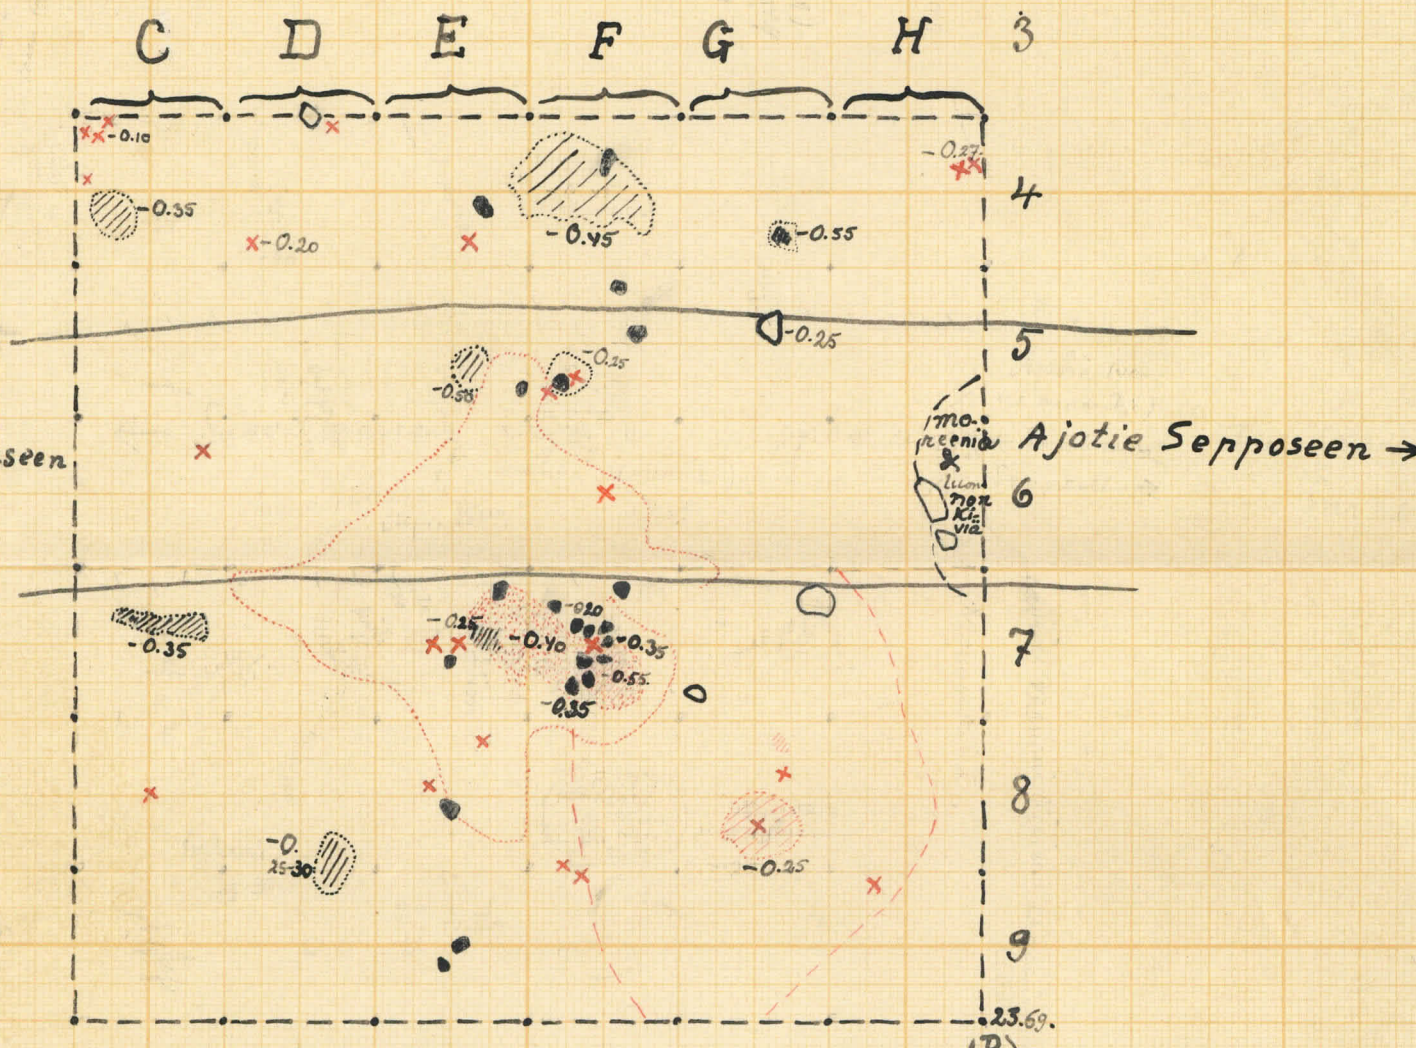 C D E F G H 3
-0.10
-0.27
4
-0.35
-0.20
-0.45
-0.55
-0.25
5
-0.25
-0.50
mo-
reenia
&
luon
non
ki-
viä
Ajotie Sepposeen →
seen
6
-0.20
-0.25
-0.40
-0.35
7
-0.35
-0.55
-0.35
8
-0.
25-30
-0.25
9
23.69.